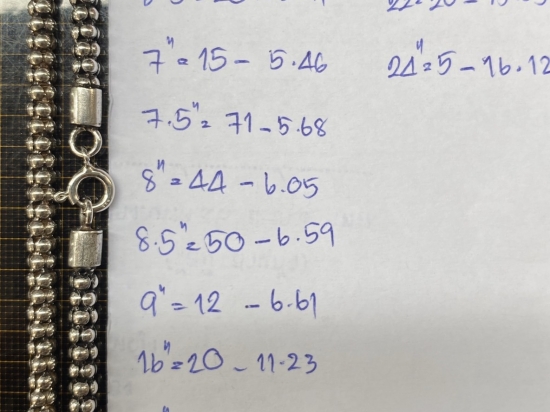 7" = 15 - 5.46
24" = 5 - 16.12
7.5" = 71 - 5.68
8" = 44 - 6.05
8.5" = 50 - 6.59
9" = 12 - 6.61
16" = 20 - 11.23